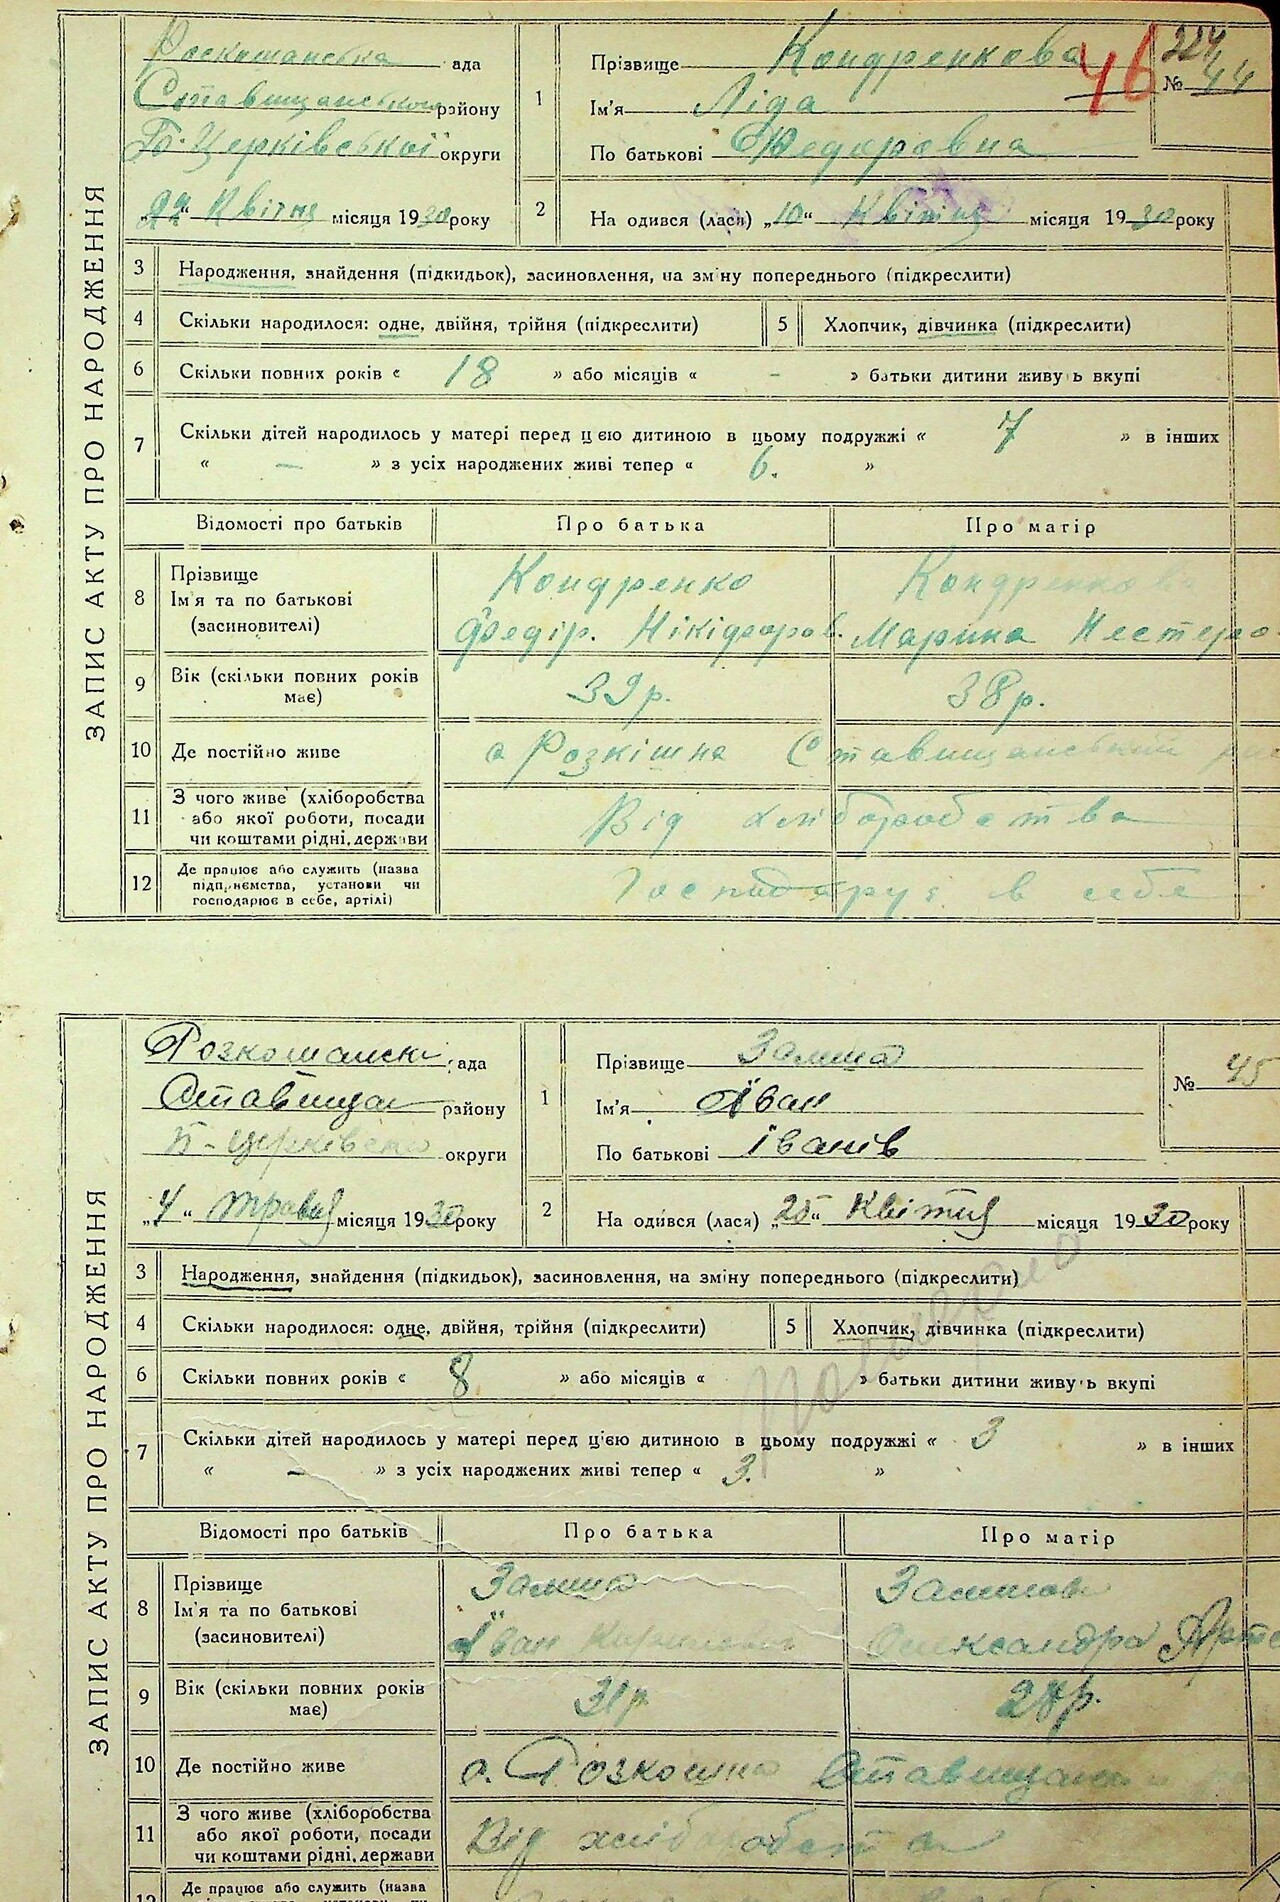 ЗАПИС АКТУ ПРО НАРОДЖЕННЯ
Роскошанська ада
Ставищанського району
Б. Церківської округи
„22“ Квітня місяця 1930 року
1
Прізвище Кондренкова
Ім'я Ліда
По батькові Федоровна
46
224
№ 44
2
На одився (лася) „10“ Квітня місяця 1930 року
3 Народження, знайдення (підкидьок), засиновлення, на зміну попереднього (підкреслити)
4 Скільки народилося: одне, двійня, трійня (підкреслити) 5 Хлопчик, дівчинка (підкреслити)
6 Скільки повних років « 18 » або місяців « - » батьки дитини живуь вкупі
7 Скільки дітей народилось у матері перед цією дитиною в цьому подружжі « 7 » в інших
« — » з усіх народжених живі тепер « 6. »
Відомості про батьків Про батька Про матір
8 Прізвище
Ім'я та по батькові
(засиновителі)
Кондренко
Федір. Нікіфоров.
Кондренкова
Марина Нестеро
9 Вік (скільки повних років
має)
39 р. 38 р.
10 Де постійно живе с Розкішна Ставищанський
11 З чого живе (хліборобства
або якої роботи, посади
чи коштами рідні, держави
Від хліборобства
12 Де працює або служить (назва
підприємства, установи чи
господарює в себе, артілі)
Господарує в себе
ЗАПИС АКТУ ПРО НАРОДЖЕННЯ
Розкошанськ ада
Ставищан району
Б-церківсько округи
„4“ травня місяця 1930 року
1
Прізвище
Ім'я Іван
По батькові Іванів
№ 45
2
На одився (лася) „25“ Квітня місяця 1930 року
3 Народження, знайдення (підкидьок), засиновлення, на зміну попереднього (підкреслити)
4 Скільки народилося: одне, двійня, трійня (підкреслити) 5 Хлопчик, дівчинка (підкреслити)
6 Скільки повних років « 8 » або місяців « » батьки дитини живуь вкупі
7 Скільки дітей народилось у матері перед цією дитиною в цьому подружжі « 3 » в інших
« — » з усіх народжених живі тепер « 3. »
Відомості про батьків Про батька Про матір
8 Прізвище
Ім'я та по батькові
(засиновителі)
Іван
Олександра Арте
9 Вік (скільки повних років
має)
31 р 28 р.
10 Де постійно живе с. Розкошна
11 З чого живе (хліборобства
або якої роботи, посади
чи коштами рідні, держави
Від хліборобства
12 Де працює або служить (назва